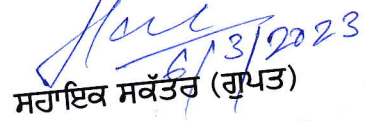 6/3/2023
ਸਹਾਇਕ ਸਕੱਤਰ (ਗੁਪਤ)